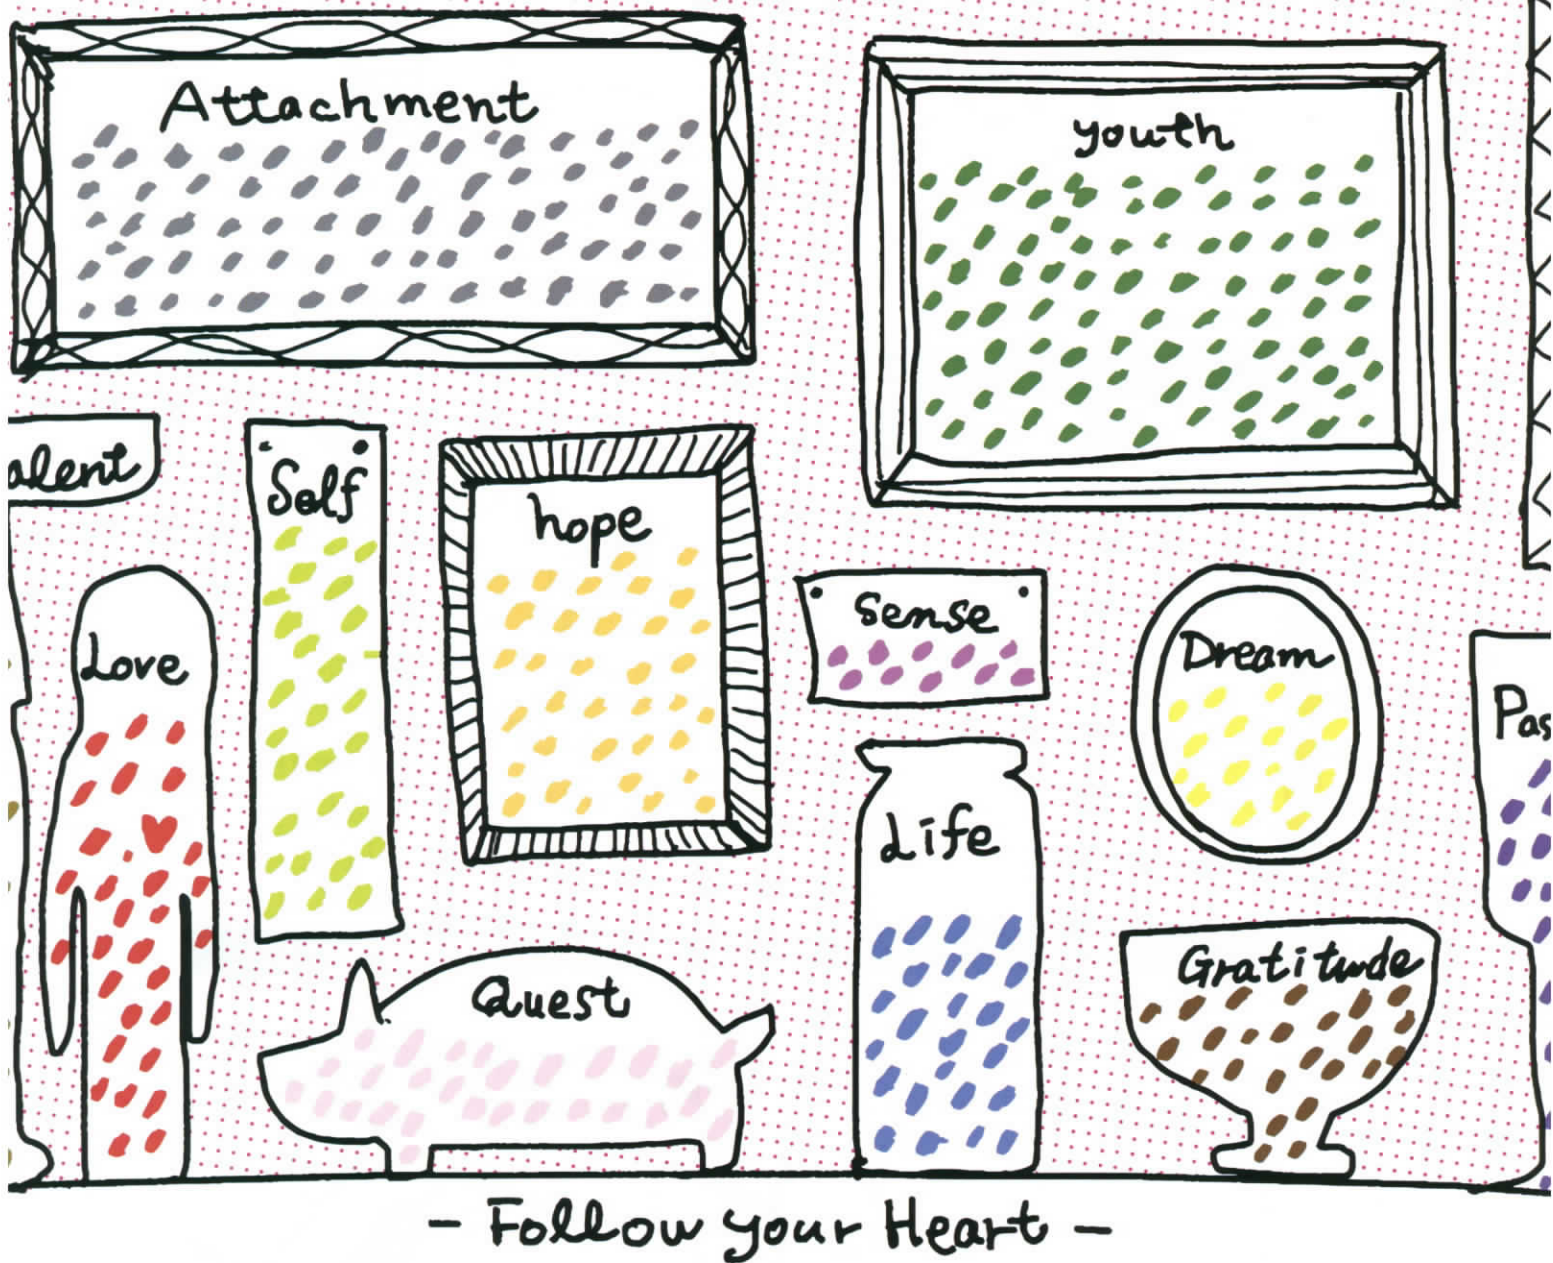 Attachment
youth
alent
Self
hope
Sense
Dream
Love
Pas
Life
Quest
Gratitude
- Follow your Heart -